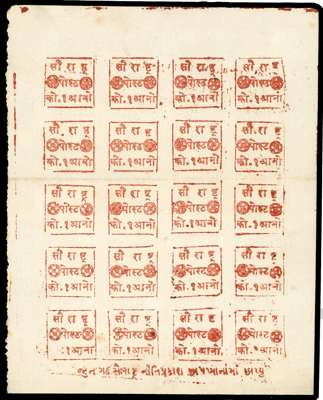 સૌ રા ષ્ટ્ર સૌ રા ષ્ટ્ર સૌ રા ષ્ટ્ર સૌ રા ષ્ટ્ર
પોસ્ટ પોસ્ટ પોસ્ટ પોસ્ટ
કી.૧ આનો કી.૧ આનો કી.૧ આનો કી.૧ આનો
સૌ રા ષ્ટ્ર સૌ રા ષ્ટ્ર સૌ રા ષ્ટ્ર સૌ રા ષ્ટ્ર
પોસ્ટ પોસ્ટ પોસ્ટ પોસ્ટ
કી.૧ આનો કી.૧ આનો કી.૧ આનો કી.૧ આનો
સૌ રા ષ્ટ્ર સૌ રા ષ્ટ્ર સૌ રા ષ્ટ્ર સૌ રા ષ્ટ્ર
પોસ્ટ પોસ્ટ પોસ્ટ પોસ્ટ
કી.૧ આનો કી.૧ આનો કી.૧ આનો કી.૧ આનો
સૌ રા ષ્ટ્ર સૌ રા ષ્ટ્ર સૌ રા ષ્ટ્ર સૌ રા ષ્ટ્ર
પોસ્ટ પોસ્ટ પોસ્ટ પોસ્ટ
કી.૧ આનો કી.૧ આનો કી.૧ આનો કી.૧ આનો
સૌ રા ષ્ટ્ર સૌ રા ષ્ટ્ર સૌ રા ષ્ટ્ર સૌ રા ષ્ટ્ર
પોસ્ટ પોસ્ટ પોસ્ટ પોસ્ટ
૧ આનો કી.૧ આનો કી.૧ આનો કી.૧ આનો
જુનાગઢ સૌરાષ્ટ્ર નીતિપ્રકાશ છાપખાનામાં